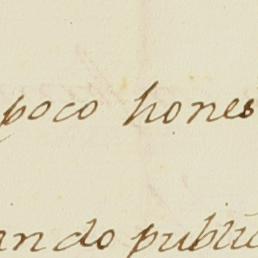 poco hones
ando public